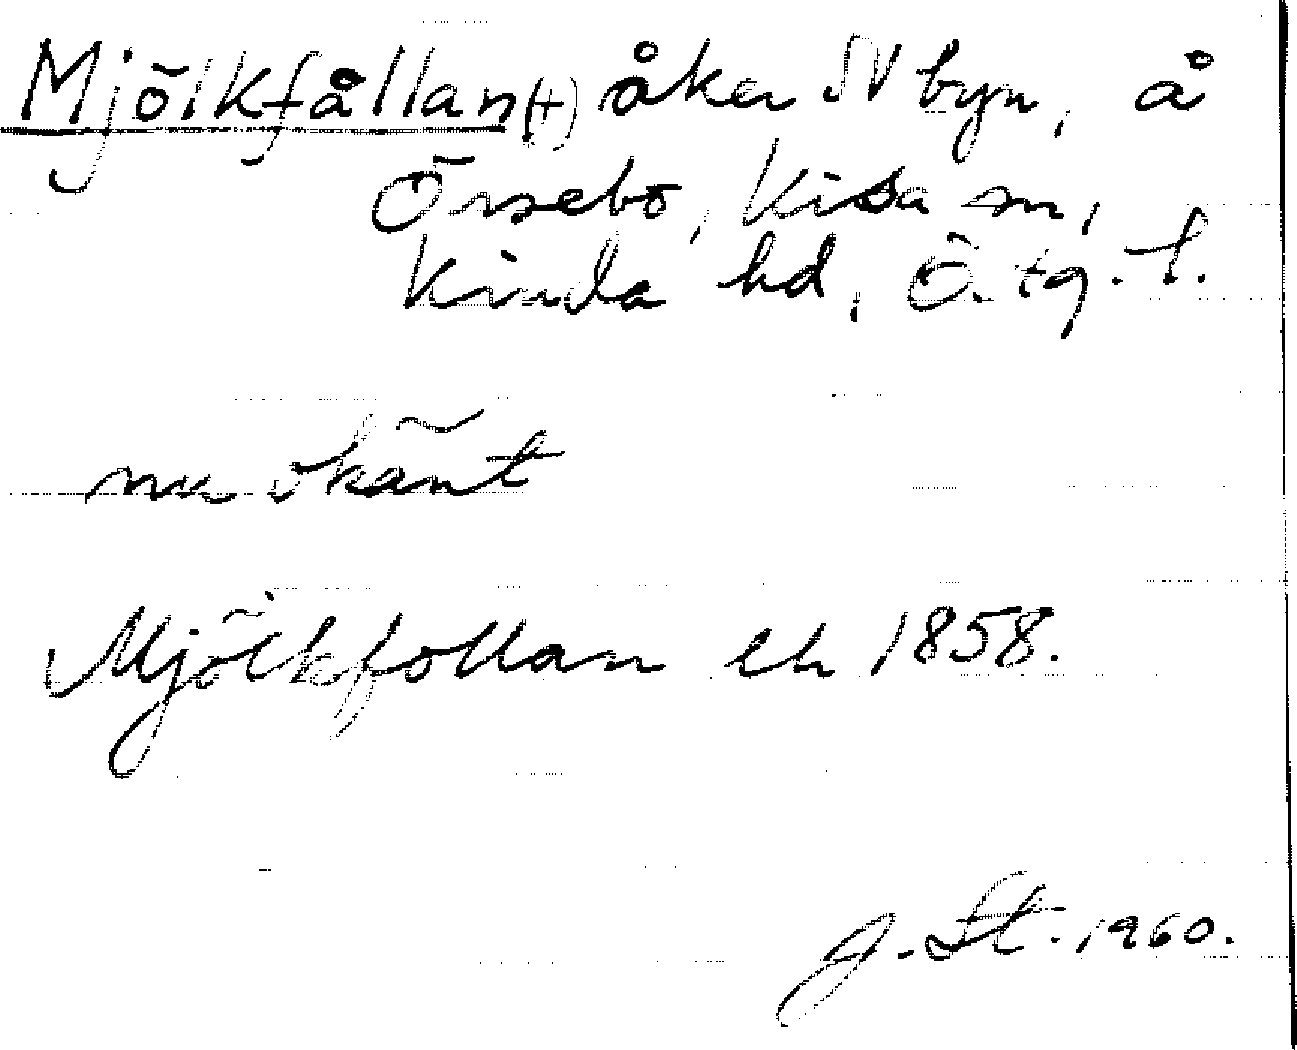 Mjölkfållan (†) åker SV byn, å
Örsebo, Kisa sn,
Kinda hd, Ö.tg.l.
nu okänt
Mjölkfollan eh 1858.
J. St. 1960.